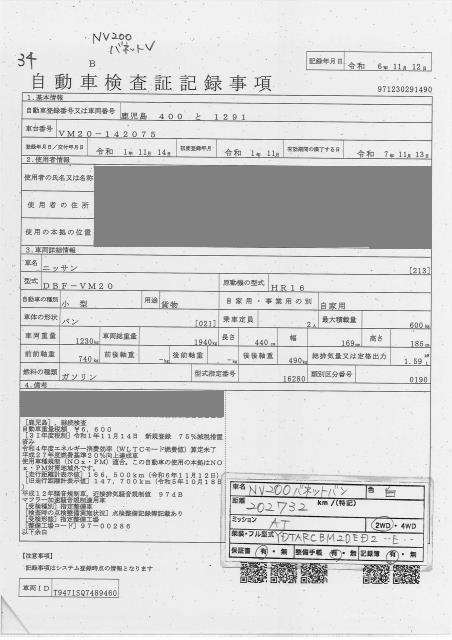 NV200
バネットV
34
B
記録年月日 令和 6年 11月 12日
自動車検査証記録事項
971230291490
1.基本情報
自動車登録番号又は車両番号 鹿児島 400 と 1291
車台番号 VM20-142075
登録年月日/交付年月日 令和 1年 11月 14日 初度登録年月 令和 1年 11月 有効期間の満了する日 令和 7年 11月 13日
2.使用者情報
使用者の氏名又は名称
使用者の住所
使用の本拠の位置
3.車両詳細情報
車名 ニッサン [213]
型式 DBF-VM20 原動機の型式 HR16
自動車の種別 小型 用途 貨物 自家用・事業用の別 自家用
車体の形状 バン [021] 乗車定員 2人 最大積載量 600kg
車両重量 1230kg 車両総重量 1940kg 長さ 440cm 幅 169cm 高さ 185cm
前前軸重 740kg 前後軸重 -kg 後前軸重 -kg 後後軸重 490kg 総排気量又は定格出力 1.59
燃料の種類 ガソリン 型式指定番号 16280 類別区分番号 0190
4.備考
[鹿児島], 継続検査
自動車重量税額 ¥6,600
[31年度税制] 令和1年11月14日 新規登録 75%減税措置
済み
令和4年度エネルギー消費効率(WLTCモード燃費値)算定未了
平成27年度燃費基準20%向上達成車
使用車種規制(NOx・PM)適合。この自動車の使用の本拠はNO
x・PM対策地域外です。
[走行距離計表示値] 166,500km(令和6年11月12日)
[旧走行距離計表示値] 147,700km(令和5年10月18日
平成12年騒音規制車, 近接排気騒音規制値 97dB
マフラー加速騒音規制適用車
[受検種別] 指定整備車
[検査時の点検整備実施状況] 点検整備記録簿記載あり
[受検形態] 指定整備工場
[整備工場コード] 97-00286
以下余白
車名 NV200バネットバン 色 白
距離 202732 km/(特記)
ミッション AT 2WD・4WD
架装・フル型式
保証書 有・無 整備手帳 有・無 記録簿 有・無
[注意事項]
記録事項はシステム登録時点の情報となります
車両ID T9471SQ7489460